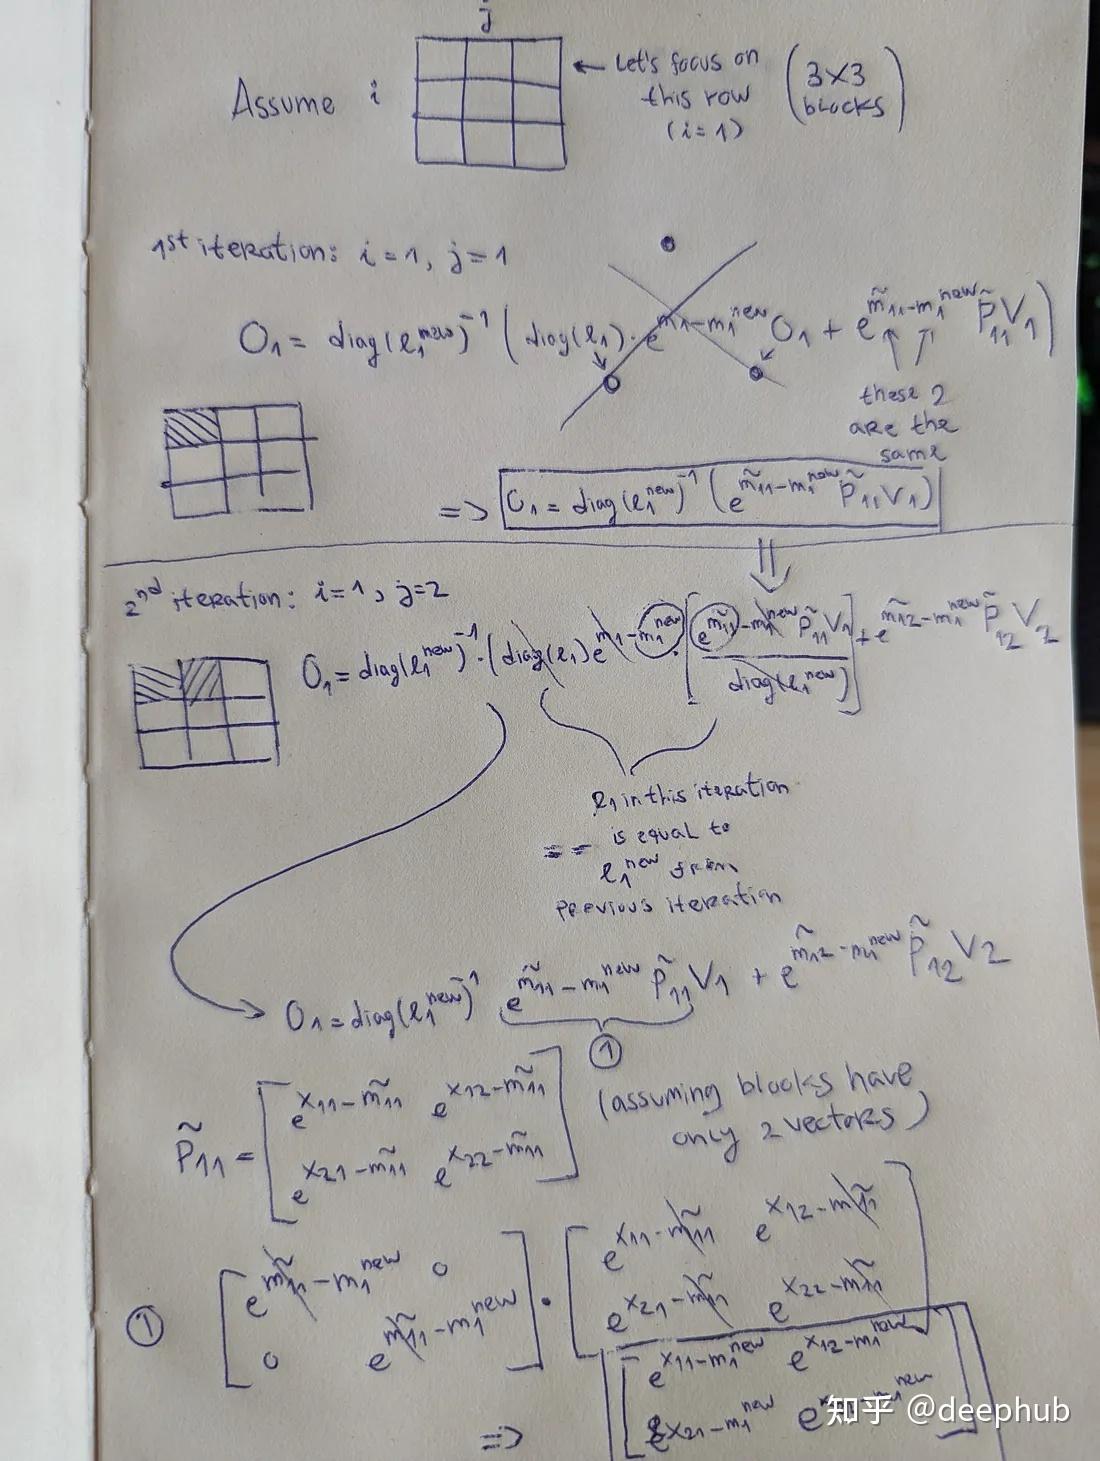 j
Assume i
← Let's focus on
this row
(i=1)
(3×3
blocks)
1st iteration: i=1, j=1
O₁ = diag(ℓ₁^new)^-1 (diag(ℓ₁)·e^{m₁-m₁^new} O₁ + e^{m̃₁₁-m₁^new} P̃₁₁V₁)
these 2
are the
same
=> O₁ = diag(ℓ₁^new)^-1 (e^{m̃₁₁-m₁^new} P̃₁₁V₁)
2nd iteration: i=1, j=2
O₁ = diag(ℓ₁^new)^-1·(diag(ℓ₁)e^{m₁-m₁^new}·[e^{m̃₁₁-m₁^new} P̃₁₁V₁ / diag(ℓ₁^new)] + e^{m̃₁₂-m₁^new} P̃₁₂V₂
ℓ₁ in this iteration
== is equal to
ℓ₁^new from
previous iteration
O₁ = diag(ℓ₁^new)^-1 e^{m̃₁₁-m₁^new} P̃₁₁V₁ + e^{m̃₁₂-m₁^new} P̃₁₂V₂
①
P̃₁₁ = [e^{x₁₁-m̃₁₁} e^{x₁₂-m̃₁₁}
e^{x₂₁-m̃₁₁} e^{x₂₂-m̃₁₁}]
(assuming blocks have
only 2 vectors)
① [e^{m̃₁₁-m₁^new} 0
0 e^{m̃₁₁-m₁^new}]
· [e^{x₁₁-m̃₁₁} e^{x₁₂-m̃₁₁}
e^{x₂₁-m̃₁₁} e^{x₂₂-m̃₁₁}]
=> [e^{x₁₁-m₁^new} e^{x₁₂-m₁^new}
e^{x₂₁-m₁^new}
知乎 @deephub